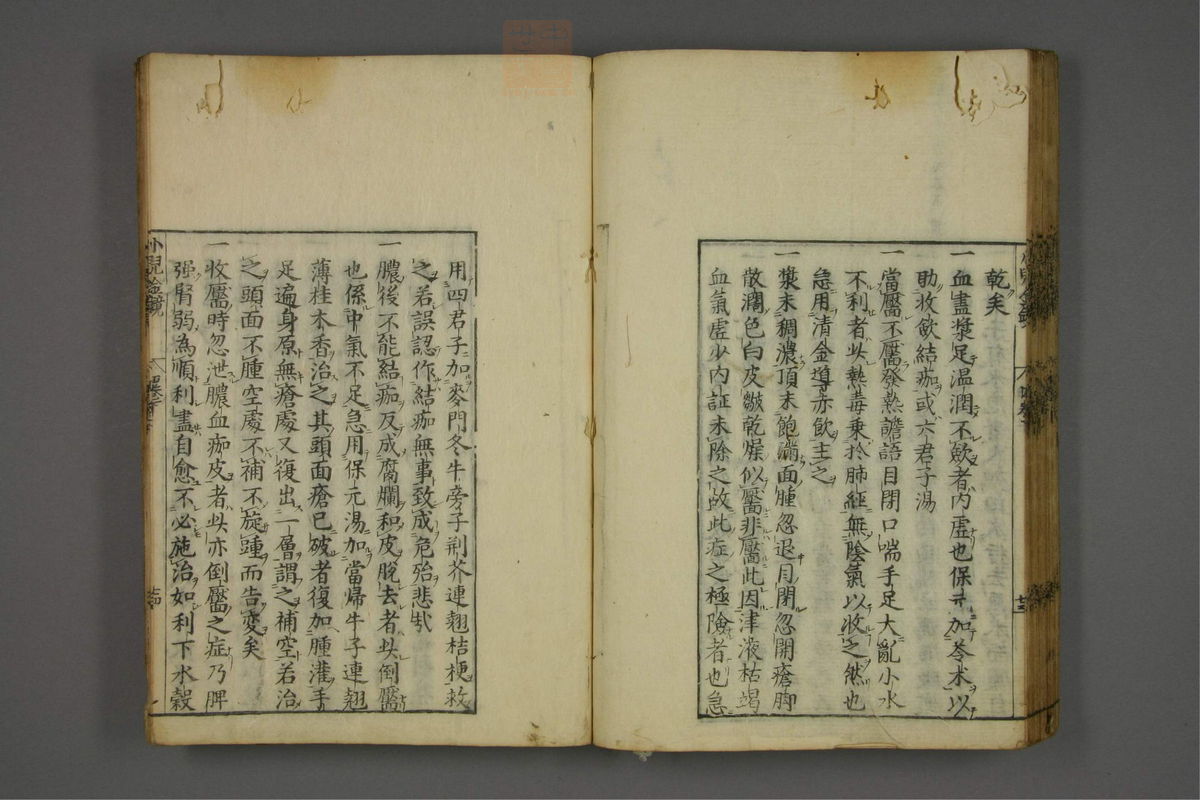 乾矣
一 血盡漿足温潤不斂者内虚也保元加苓术以
助收斂結痂或六君子湯
一 當靨不靨發熱譫語目閉口喘手足大亂小水
不利者此熱毒乗於肺經無陰氣以收之然也
急用清金導赤飲主之
一 漿未稠濃頂未飽滿面腫忽退目閉忽開瘡脚
散濶色白皮皺乾燥似靨非靨此因津液枯竭
血氣虚少内証未除之故此症之極險者也急
用四君子加麥門冬牛旁子荆芥連翹桔梗救
之若誤認作結痂無事致成危殆悲哉
一 膿後不能結痂反成腐爛和皮脫去者此倒靨
也係中氣不足急用保元湯加當帰牛子連翹
薄桂木香治之其頭面瘡已破者復加腫灌手
足遍身原無瘡處又復出一層謂之補空若治
之頭面不腫空處不補不旋踵而告變矣
一 收靨時忽泄膿血痂皮者此亦倒靨之症乃脾
强腎弱為順利盡自愈不必施治如利下水穀
小兒金鏡